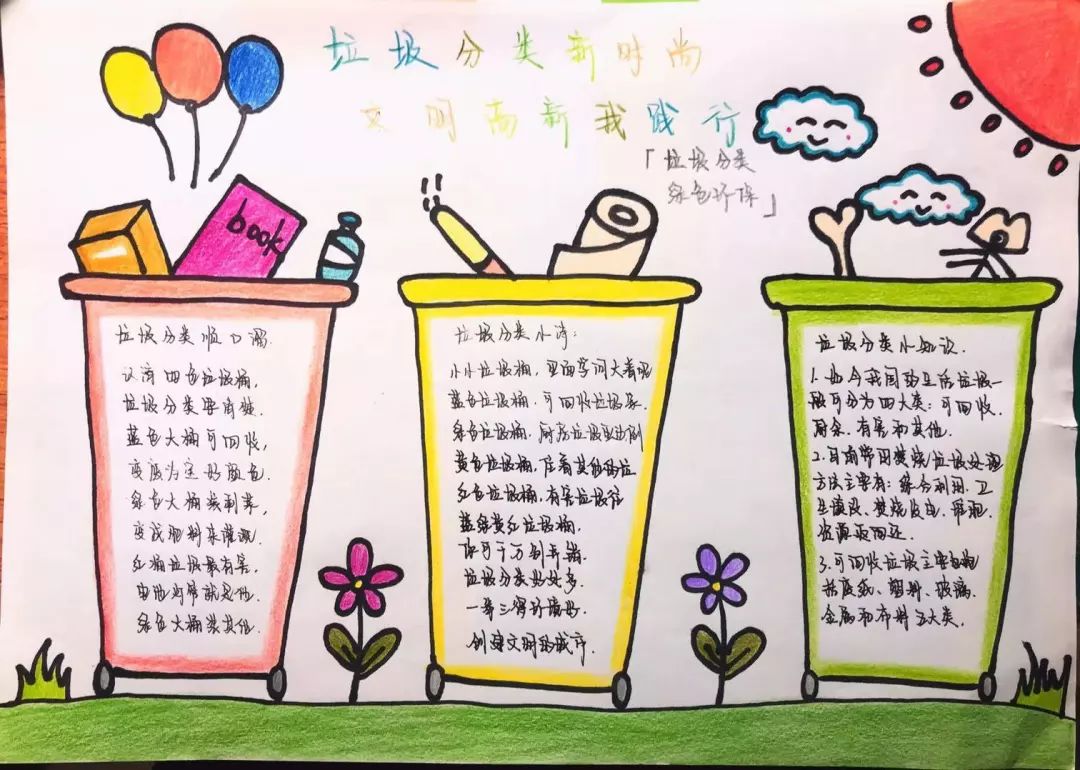 垃圾分类新时尚
文明高新我践行
「垃圾分类
绿色环保」
book
垃圾分类顺口溜
认清四色垃圾桶,
垃圾分类要做.
蓝色大桶可回收,
变废为宝好颜色.
绿色大桶装剩菜,
变成肥料来灌溉.
红桶垃圾最有害,
电池灯管就是他.
绿色大桶装其他.
垃圾分类小诗:
小小垃圾桶,里面学问大着呢
蓝色垃圾桶.可回收垃圾家.
绿色垃圾桶.厨房垃圾到
黄色垃圾桶,住着其他的垃
红色垃圾桶,有害垃圾住
蓝绿黄红垃圾桶.
你可千万别弄错.
垃圾分类好处多.
一举三得环境好.
创建文明的城市.
垃圾分类小知识.
1.如今我国的生活垃圾一
般可分为四大类:可回收.
厨余.有害和其他.
2.目前常用焚烧垃圾处理
方法主要有:综合利用.卫
生填没.焚烧发电.堆肥.
资源返回还.
3.可回收垃圾主要包
括废纸.塑料.玻璃.
金属和布料五大类.